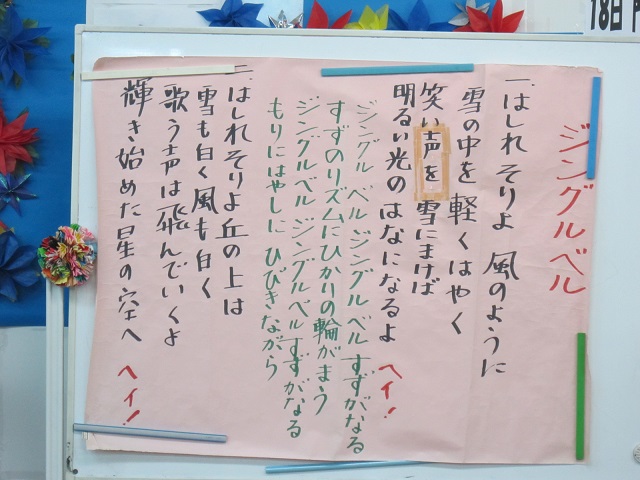 18日
ジングルベル
一、はしれ そりよ 風のように
雪の中を 軽くはやく
笑い声を 雪にまけば
明るい光の はなになるよ ヘイ!
ジングル ベル ジングルベル すずがなる
すずのリズムに ひかりの輪がまう
ジングルベル ジングルベル すずがなる
もりに はやしに ひびきながら
二、はしれ そりよ 丘の上は
雪も白く 風も白く
歌う声は 飛んでいくよ
輝き始めた 星の空へ ヘイ!